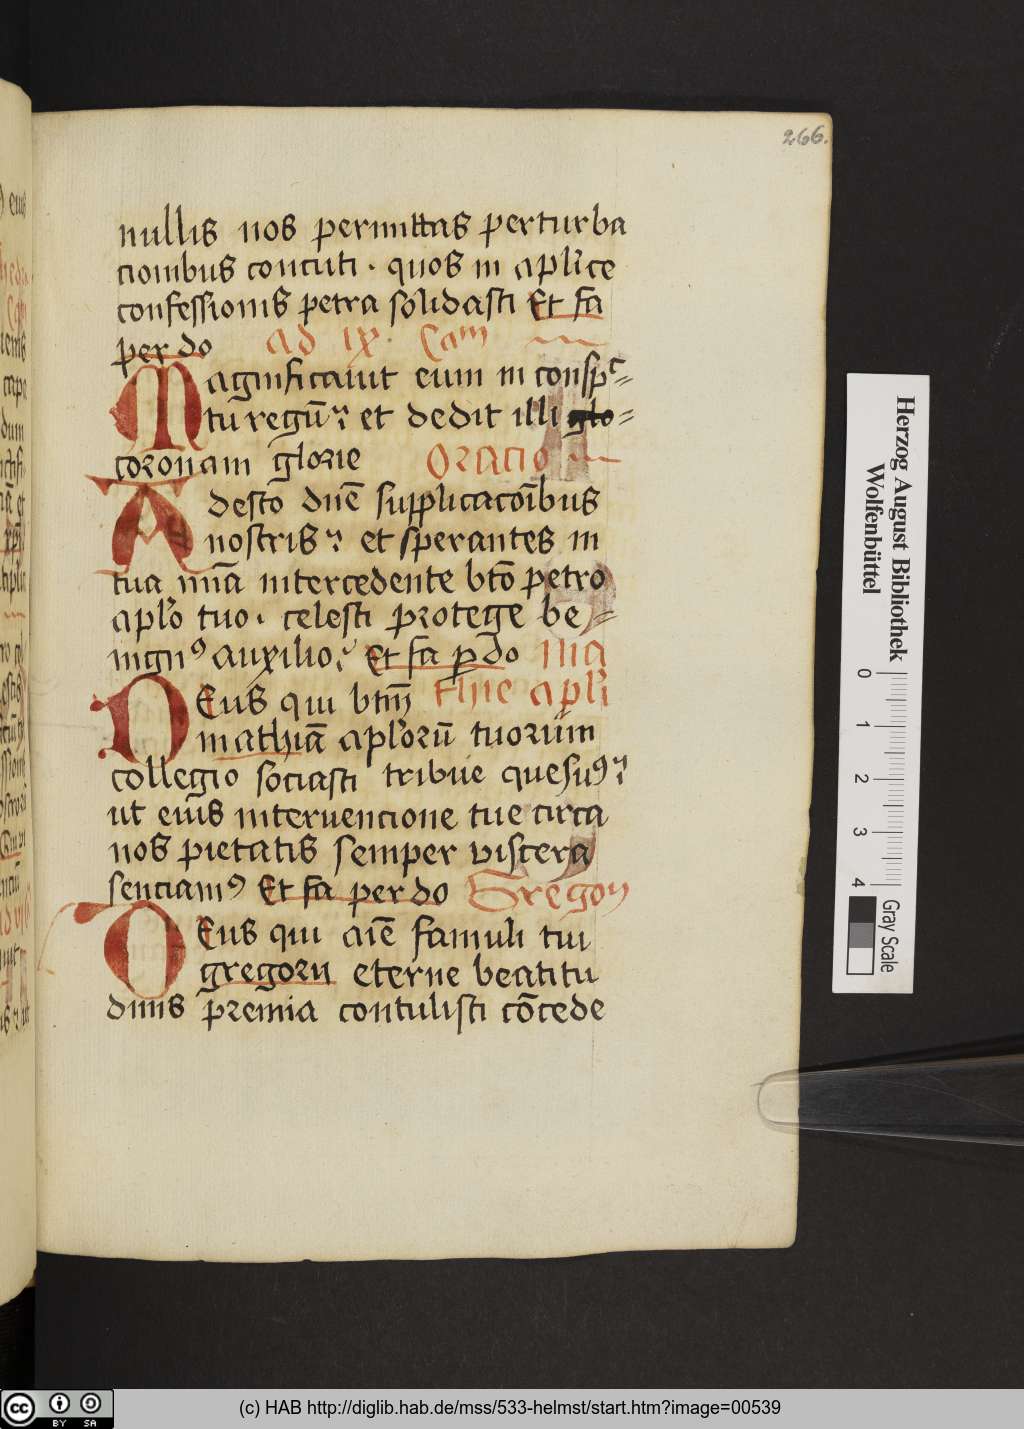 266.
nullis nos permittas perturba
cionibus concuti · quos in aplīce
confessionis petra solidasti Et fa
per do ad ix. Cam
Magnificauit eum in conspc=
tu regū· et dedit illi glo=
coronam glorie Oracio
Adesto dnē supplicacōībus
nostris· et sperantes in
tua mīa intercedente btō petro
aplō tuo · celesti protege be=
nignꝰ auxilio· Et fa p do Ma
DEus qui btm̄ thie apli
mathiā aplorū tuorum
collegio sociasti tribue quesuꝰ·
ut eius interuencione tue circa
nos pietatis semper viscera
senciamꝰ Et fa per do Gregorij
DEus qui aīe famuli tui
gregorii eterne beatitu
dinis premia contulisti cōcede
Herzog August Bibliothek
Wolfenbüttel
0 1 2 3 4
Gray Scale
cc BY SA
(c) HAB http://diglib.hab.de/mss/533-helmst/start.htm?image=00539